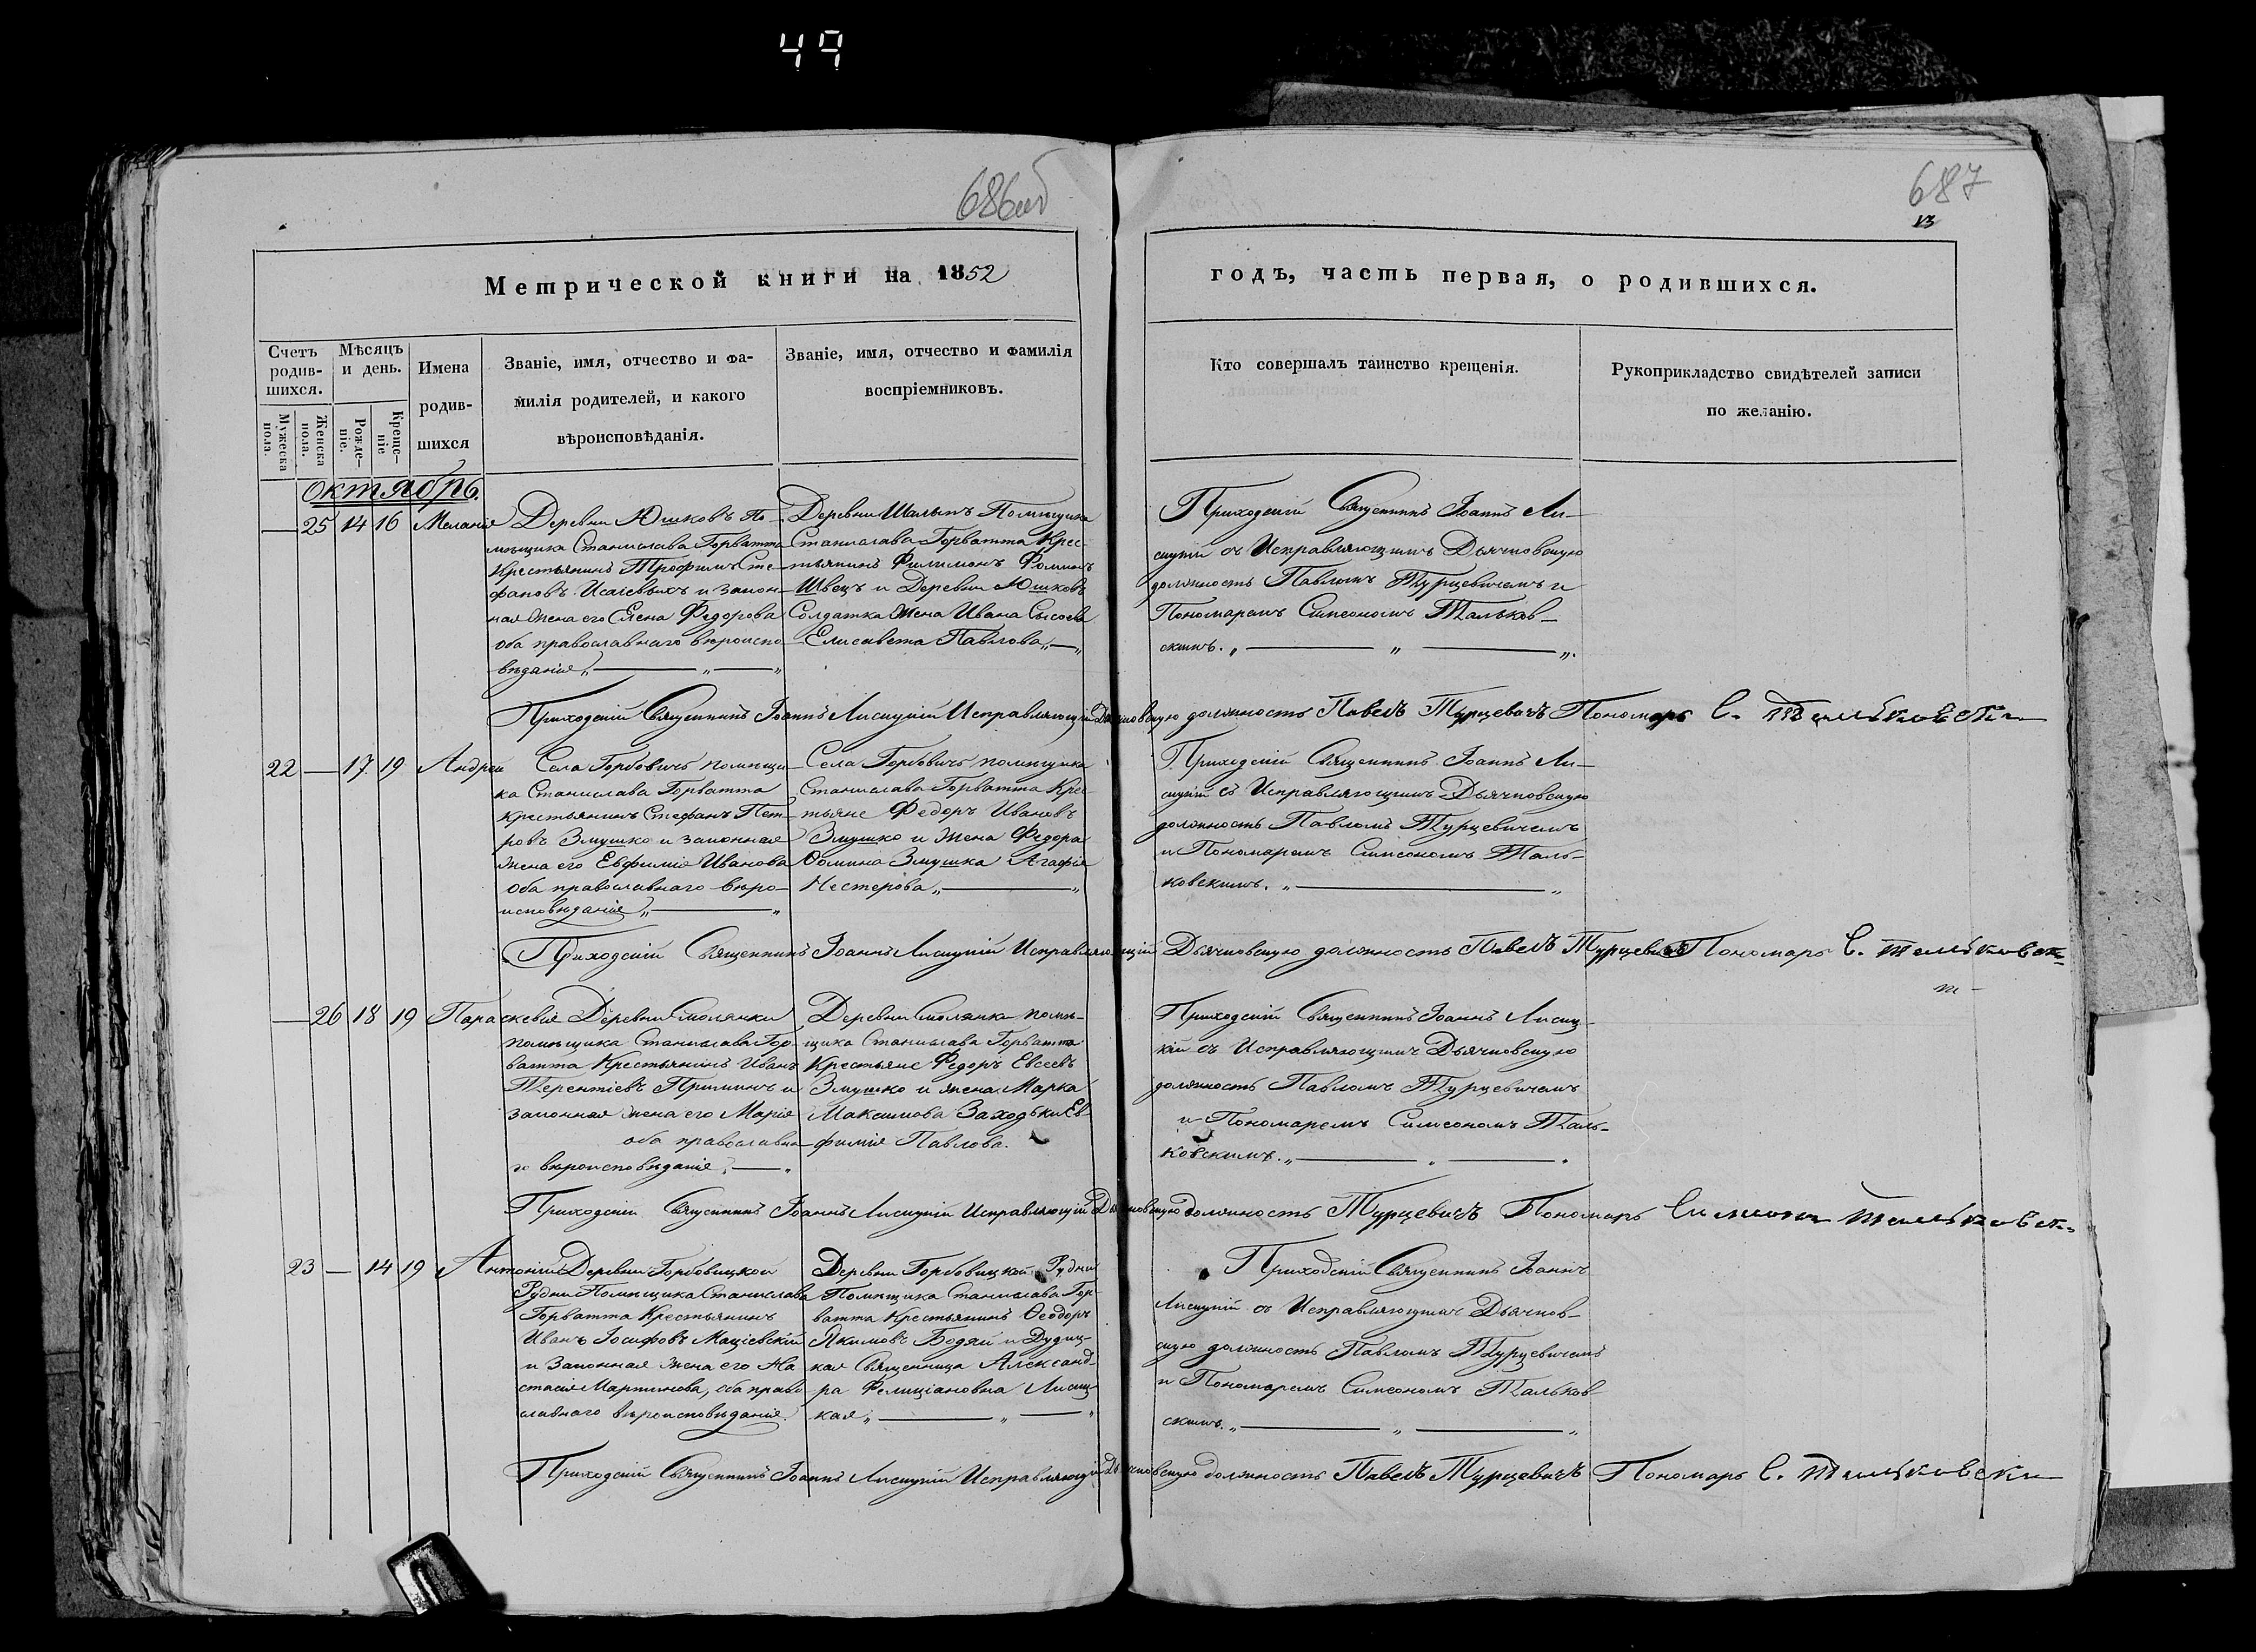 49
686об
687
13
Метрической книги на 1852
годъ, часть первая, о родившихся.
Счетъ родив-шихся.
Мѣсяцъ и день.
Имена родив-шихся
Званіе, имя, отчество и фа-
милія родителей, и какого
вѣроисповѣданія.
Званіе, имя, отчество и фамилія
воспріемниковъ.
Кто совершалъ таинство крещенія.
Рукоприкладство свидѣтелей записи
по желанію.
Мужеска пола.
Женска пола.
Рожде-ніе.
Креще-ніе
Октябрь.
25 14 16 Меланія
Деревни Юшковъ По-
мѣщика Станислава Горватта
Крестьянинъ Трофимъ Сте-
фановъ Исаевичъ и закон-
ная жена его Елена Федорова
оба православнаго вѣроиспо-
вѣданія
Деревни Шалынъ Помѣщика
Станислава Горватта Крес-
тьянинъ Филимонъ Фоминъ
Швецъ и Деревни Юшковъ
Солдатка жена Ивана Сысоева
Елисавета Павлова
Приходскій Священникъ Іоаннъ Ли-
сицкій съ Исправляющимъ Дьячковскую
должность Павломъ Турцевичемъ и
Пономаремъ Симеономъ Тальков-
скимъ.
Приходскій Священникъ Іоаннъ Лисицкій Исправляющій Дьячковскую должность Павелъ Турцевичъ Пономарь С. Тальковски
22 — 17 19 Андрей
Села Горбовичъ помѣщи-
ка Станислава Горватта
крестьянинъ Стефанъ Пет-
ровъ Змушко и законная
жена его Евфимія Иванова
оба православнаго вѣро-
исповѣданія
Села Горбовичъ помѣщика
Станислава Горватта Крес-
тьяне Федоръ Ивановъ
Змушко и жена Федора
Фомина Змушка Агафія
Нестерова
Приходскій Священникъ Іоаннъ Ли-
сицкій съ Исправляющимъ Дьячковскую
должность Павломъ Турцевичемъ
и Пономаремъ Симеономъ Таль-
ковскимъ.
Приходскій Священникъ Іоаннъ Лисицкій Исправляющій Дьячковскую должность Павелъ Турцевичъ Пономарь С. Тальковск-
26 18 19 Параскевія
Деревни Смолянки
помѣщика Станислава Гор-
ватта Крестьянинъ Иванъ
Терентіевъ Приминъ и
законная жена его Марія
оба православна-
го вѣроисповѣданія
Деревни Смолянки помѣ-
щика Станислава Горватта
Крестьяне Федоръ Евсеевъ
Змушко и жена Марка
Максимова Заходьки Ев-
фимія Павлова.
Приходскій Священникъ Іоаннъ Лисиц-
кій съ Исправляющимъ Дьячковскую
должность Павломъ Турцевичемъ
и Пономаремъ Симеономъ Таль-
ковскимъ.
Приходскій Священникъ Іоаннъ Лисицкій Исправляющій Дьячковскую должность Турцевичъ Пономарь Симеонъ Тальковск-
23 — 14 19 Антоній
Деревни Горбовицкой
Рудни Помѣщика Станислава
Горватта Крестьянинъ
Иванъ Іосифовъ Мацѣевскій
и Законная жена его На
стасія Мартинова, оба право
славнаго вѣроисповѣданія.
Деревни Горбовицкой Рудни
Помѣщика Станислава Гор-
ватта Крестьянинъ Ѳеодоръ
Якимовъ Бодяй и Дудиц-
кая Священница Александ-
ра Фелиціановна Лисиц-
кая
Приходскій Священникъ Іоаннъ
Лисицкій съ Исправляющимъ Дьячков-
скую должность Павломъ Турцевичемъ
и Пономаремъ Симеономъ Тальков-
скимъ.
Приходскій Священникъ Іоаннъ Лисицкій Исправляющій Дьячковскую должность Павелъ Турцевичъ Пономарь С. Тальковски